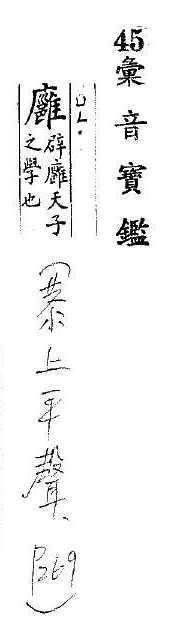 45彙音寶鑑
廱 辟廱天子
之學也
(恭上平聲、P269)